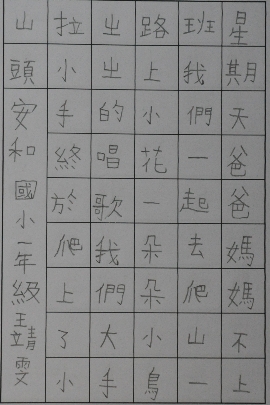 星期天爸爸媽媽不上
班我們一起去爬山一
路上小花一朵朵小鳥
出出的唱歌我們大手
拉小手終於爬上了小
山頭安和國小一年級王靖雯